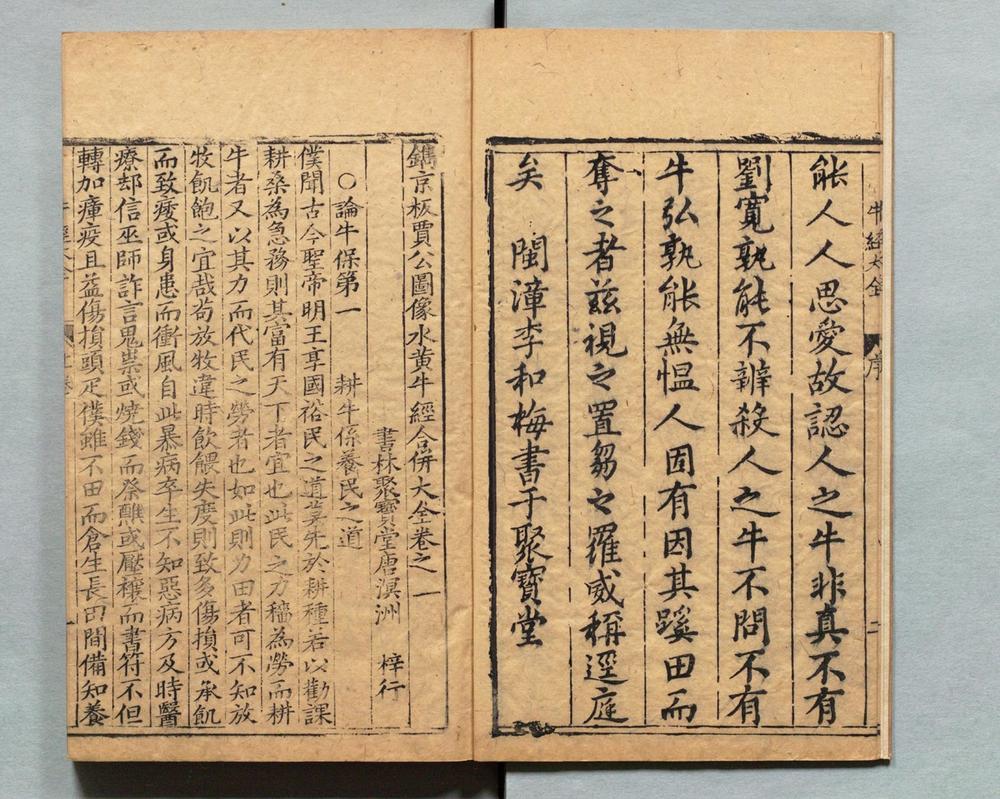 牛經大全 序 二
能人人思愛故認人之牛非真不有
劉寬孰能不辨殺人之牛不問不有
牛弘孰能無愠人固有因其蹊田而
奪之者兹視之置芻之羅威稱逕庭
矣 閩漳李和梅書于聚寶堂
鐫京板賈公圖像水黄牛經合併大全卷之一
書林聚寶堂唐溟洲 梓行
○論牛保第一 耕牛係養民之道
僕聞古今聖帝明王享國裕民之道莫先於耕種若以勸課
耕桑為急務則其富有天下者宜也此民之力穡為勞而耕
牛者又以其力而代民之勞者也如此則力田者可不知放
牧飢飽之宜哉苟放牧違時飲餵失度則致多傷損或承飢
而致疫或身患而衝風自此暴病卒生不知惡病方及時醫
療却信巫師詐言鬼祟或燒錢而祭醮或壓禳而書符不但
轉加瘴疫且益傷損頭疋僕雖不田而倉生長田間備知養